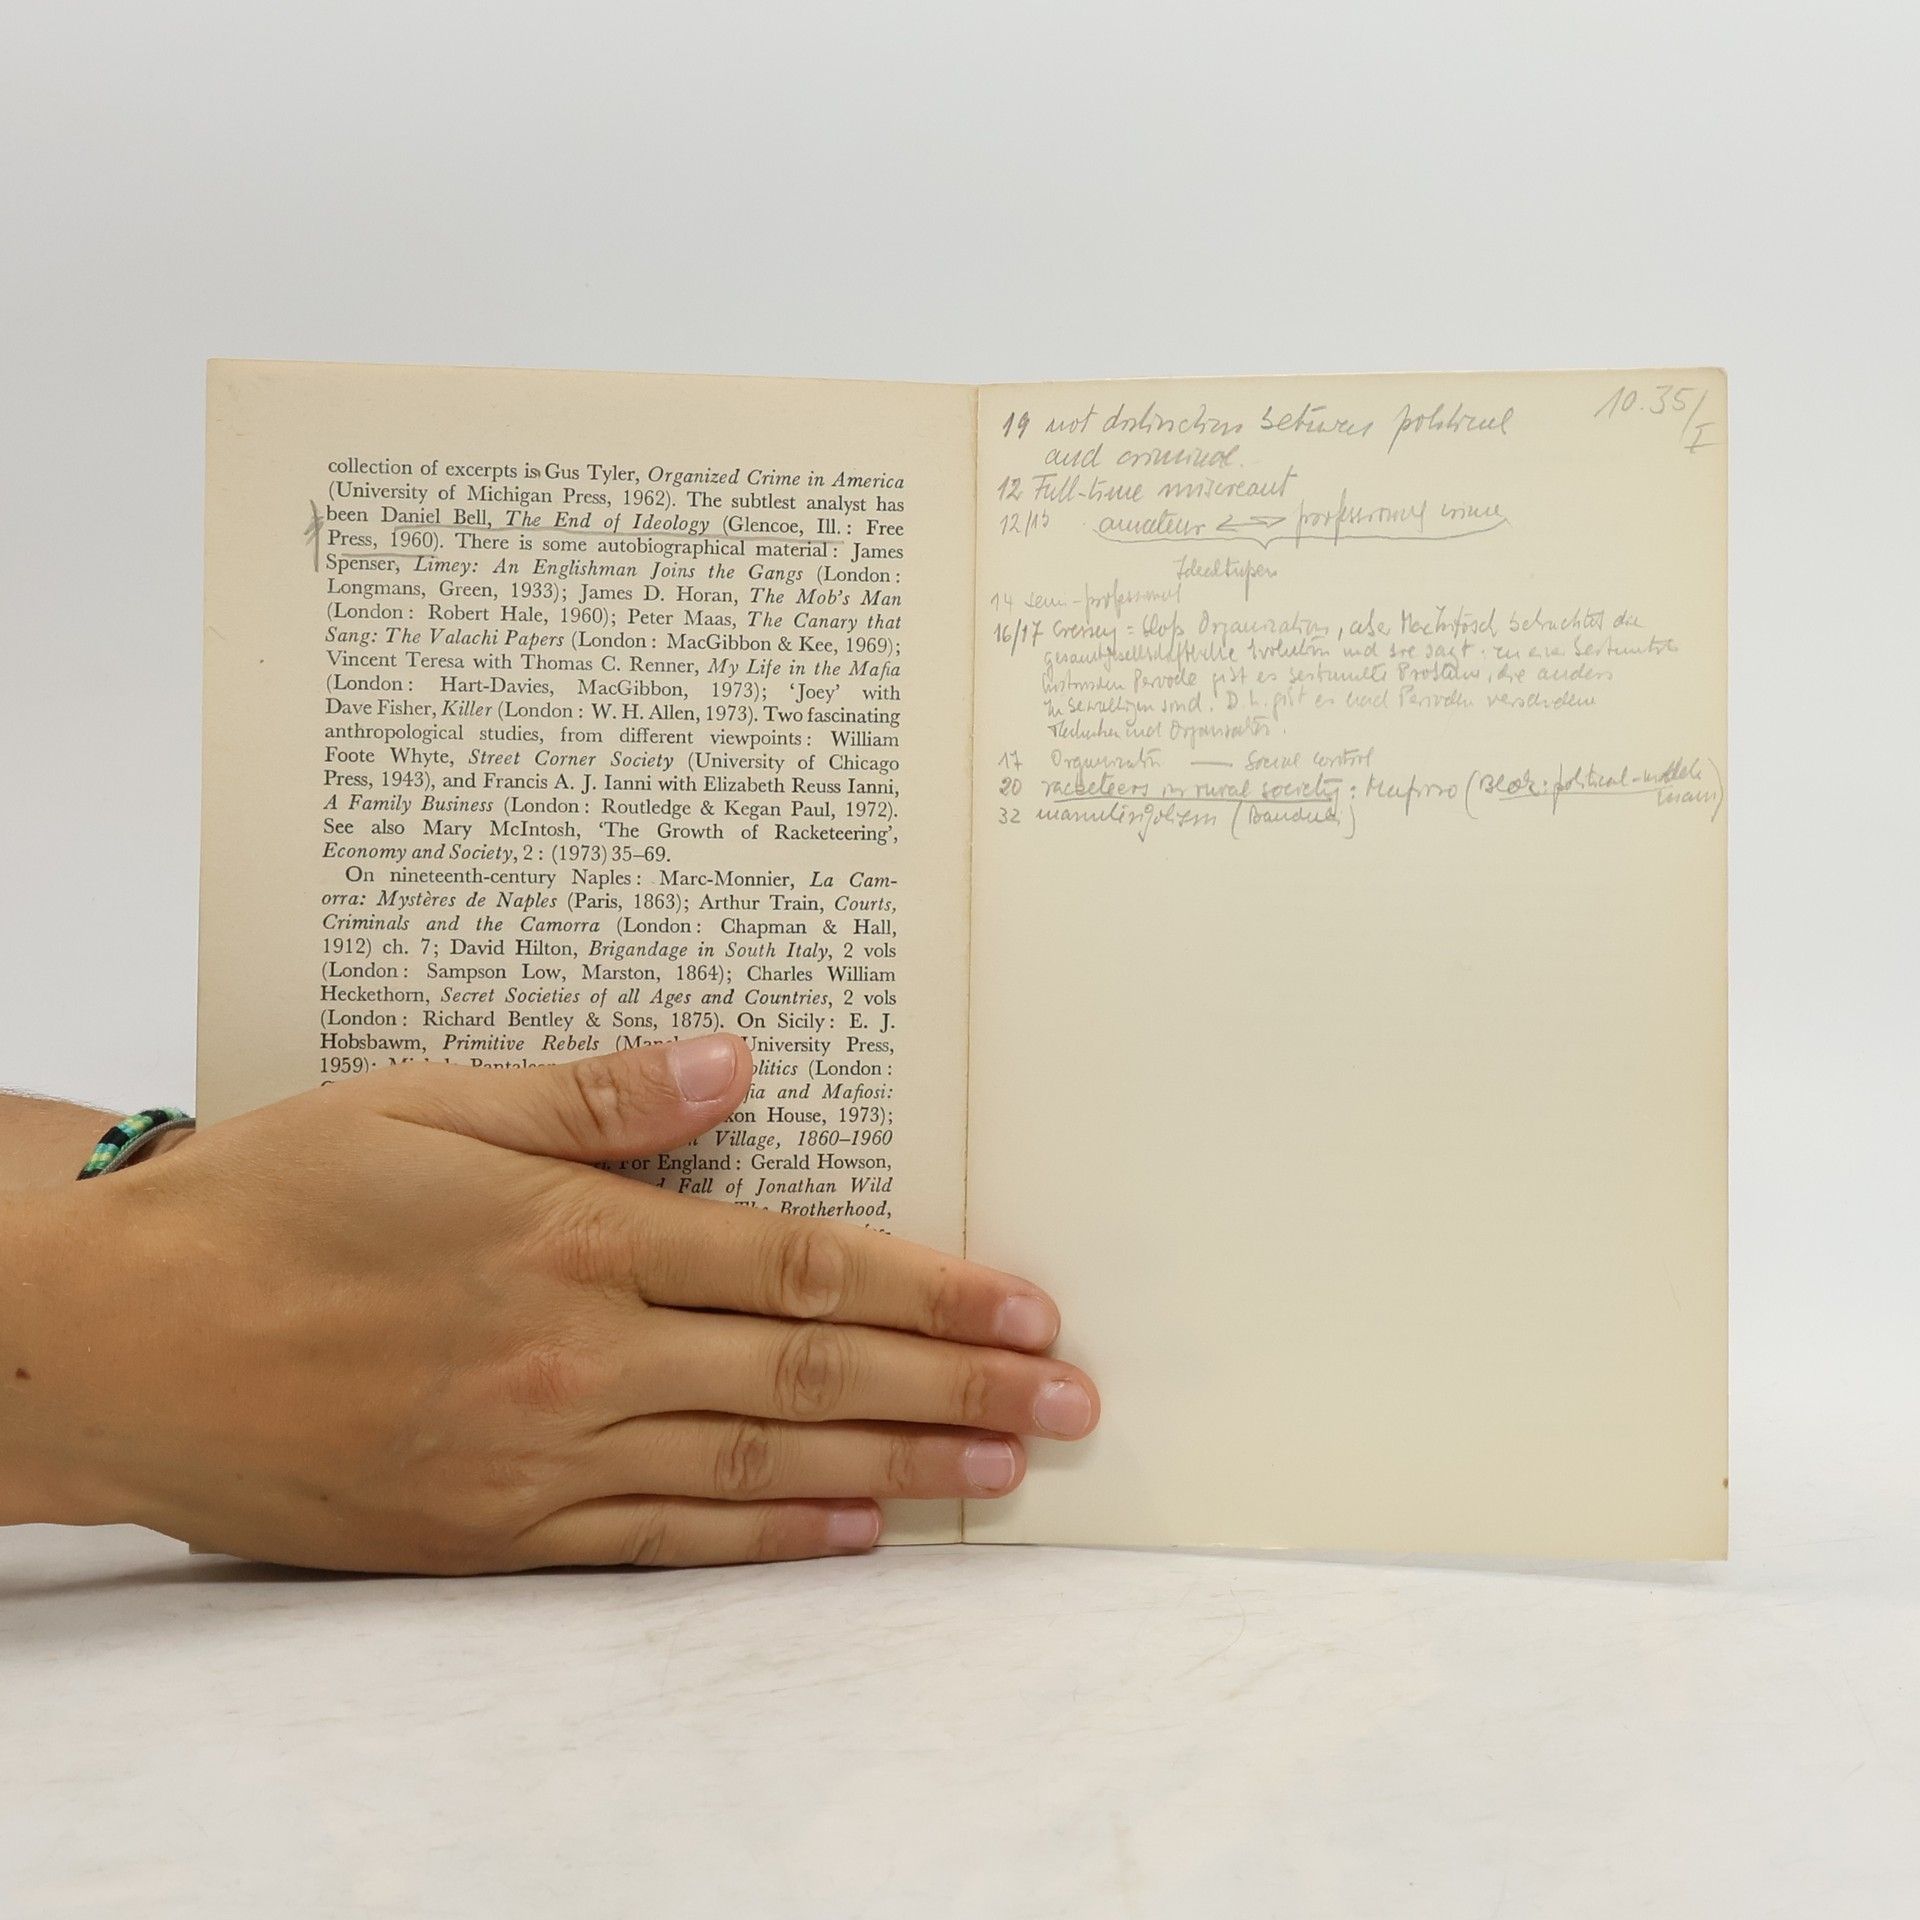 collection of excerpts is Gus Tyler, Organized Crime in America
(University of Michigan Press, 1962). The subtlest analyst has
been Daniel Bell, The End of Ideology (Glencoe, Ill.: Free
Press, 1960). There is some autobiographical material: James
Spenser, Limey: An Englishman Joins the Gangs (London:
Longmans, Green, 1933); James D. Horan, The Mob's Man
(London: Robert Hale, 1960); Peter Maas, The Canary that
Sang: The Valachi Papers (London: MacGibbon & Kee, 1969);
Vincent Teresa with Thomas C. Renner, My Life in the Mafia
(London: Hart-Davies, MacGibbon, 1973); 'Joey' with
Dave Fisher, Killer (London: W. H. Allen, 1973). Two fascinating
anthropological studies, from different viewpoints: William
Foote Whyte, Street Corner Society (University of Chicago
Press, 1943), and Francis A. J. Ianni with Elizabeth Reuss Ianni,
A Family Business (London: Routledge & Kegan Paul, 1972).
See also Mary McIntosh, 'The Growth of Racketeering',
Economy and Society, 2: (1973) 35–69.
On nineteenth-century Naples: Marc-Monnier, La Cam-
orra: Mystères de Naples (Paris, 1863); Arthur Train, Courts,
Criminals and the Camorra (London: Chapman & Hall,
1912) ch. 7; David Hilton, Brigandage in South Italy, 2 vols
(London: Sampson Low, Marston, 1864); Charles William
Heckethorn, Secret Societies of all Ages and Countries, 2 vols
(London: Richard Bentley & Sons, 1875). On Sicily: E. J.
Hobsbawm, Primitive Rebels University Press,
1959); (London:
and Mafiosi:
House, 1973);
Village, 1860–1960
For England: Gerald Howson,
Fall of Jonathan Wild
The Brotherhood,
10.35/I
19 not distinction between political
and criminal.
12 Full-time miscreant
12/13 amateur <—> professional crime
Idealtypen
14 semi-professional
16/17 Cressey = bloß Organization, aber betrachtet die
gesamtgesellschaftliche Evolution und sagt: in einer bestimmten
Periode gibt es bestimmte Probleme, die anders
zu bewältigen sind. D.h. gibt es nach Perioden verschiedene
und
17 Organization — Social control
20 racketeers in rural society: Mafioso (Blok: political-middle man)
32